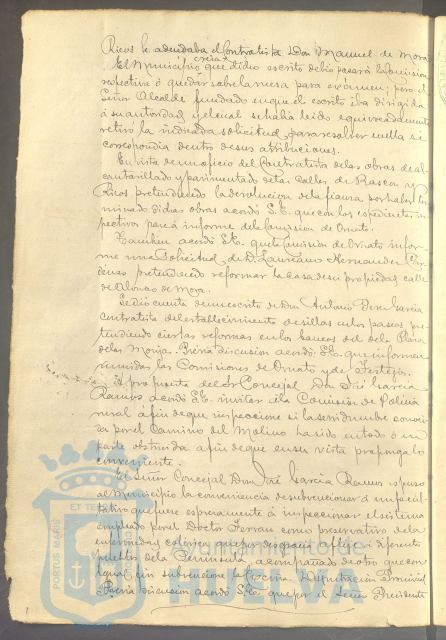 Ricos le adeudaba el Contratista Don Manuel de Mora
creia
El Municipio, que dicho escrito debio pasar á la Comision
respectiva ó quedar sobre la mesa para exámen; pero el
Señor Alcalde fundado en que el escrito iba dirigida
á su autoridad y el cual se habia leido equivocadamente
retiró la indicada solicitud para resolver en ella si
correspondia dentro de sus atribuciones.
En vista de un oficio del Contratista de las obras de al-
cantarillado y pavimentado de las calles de Rascon y
Ricos pretendiendo la devolucion de la fianza por haber ter-
minado dichas obras acordó S.E. que con los expedientes
pase á informe de la Comision de Ornato.
Tambien acordó S.E. que la Comision de Ornato infor-
me una solicitud de D. Laureano Hernandez Car-
denas pretendiendo reformar la casa de su propiedad calle
de Alonso de Mora.
Se dió cuenta de un escrito de Don Antonio Perez Garcia
contratista del establecimiento de sillas en los paseos pre-
tendiendo ciertas reformas en los bancos del de la Plaza
de las Monjas. Previa discusion acordó S.E. que informen
reunidas las Comisiones de Ornato y de Festejos.
A propuesta del Sr Concejal Don José Garcia
Ramos acordó S.E. invitar á la Comision de Policia
rural á fin de que inspeccione si la servidumbre conoci-
da por el Camino del Molino ha sido en todo ó en
parte obstruida á fin de que en su vista proponga lo
conveniente.
El Señor Concejal Don José Garcia Ramos expuso
al Municipio la conveniencia de subvencionar á un facul-
tativo que fuese espresamente á inspeccionar el sistema
empleado por el Doctor Ferran como preservativo de la
enfermedad colérica que por desgracia aflije á diferentes
pueblos de la Peninsula, acompañado de otro que con
igual fin subvencione la Excma. Diputacion Provincial
Previa discusion acordó S.E. que por el Señor Presidente
PORTUS MARIS ET TERRAE
Ayuntamiento de
HUELVA